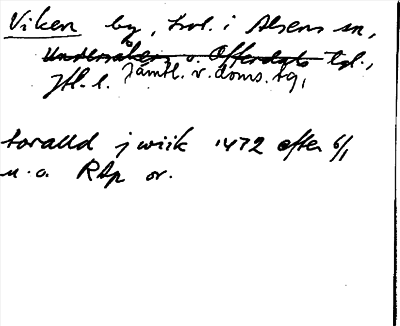 Viken by, kol. i Alsens sn,
Undersåkers o. Offerdals tgl.,
Jtl. l. Jämtl. v. doms. tg,
toralld j wiik 1472 efter 6/1
u.o. RAp or.